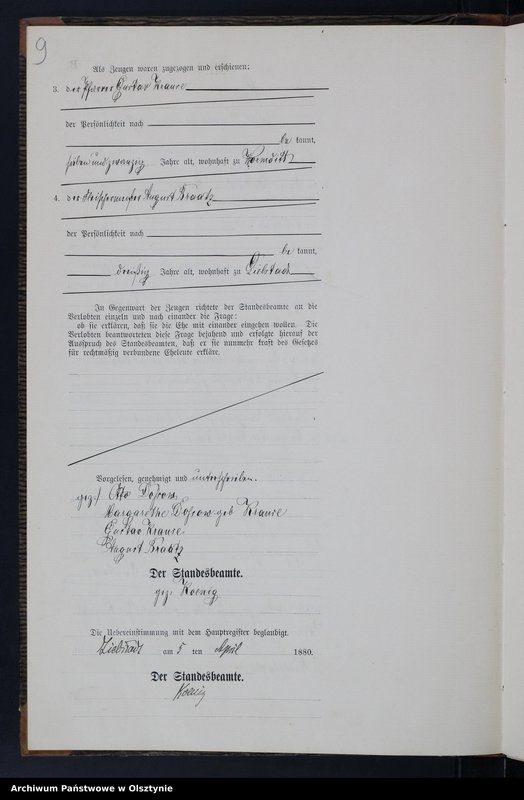 9
Als Zeugen waren zugezogen und erschienen:
3. der Pfarrer Gustav Krause
der Persönlichkeit nach
be kannt,
sieben und zwanzig Jahre alt, wohnhaft zu Wormditt
4. der Fleischermeister August Braatz
der Persönlichkeit nach
be kannt,
dreißig Jahre alt, wohnhaft zu Liebstadt
In Gegenwart der Zeugen richtete der Standesbeamte an die
Verlobten einzeln und nach einander die Frage:
ob sie erklären, daß sie die Ehe mit einander eingehen wollen. Die
Verlobten beantworteten diese Frage bejahend und erfolgte hierauf der
Ausspruch des Standesbeamten, daß er sie nunmehr kraft des Gesetzes
für rechtmäßig verbundene Eheleute erkläre.
Vorgelesen, genehmigt und unterschrieben.
gez.) Otto
Margarethe geb Krause
Gustav Krause
August Braatz
Der Standesbeamte.
gez. Koenig
Die Uebereinstimmung mit dem Hauptregister beglaubigt.
Liebstadt am 5 ten April 1880.
Der Standesbeamte.
Koenig
Archiwum Państwowe w Olsztynie